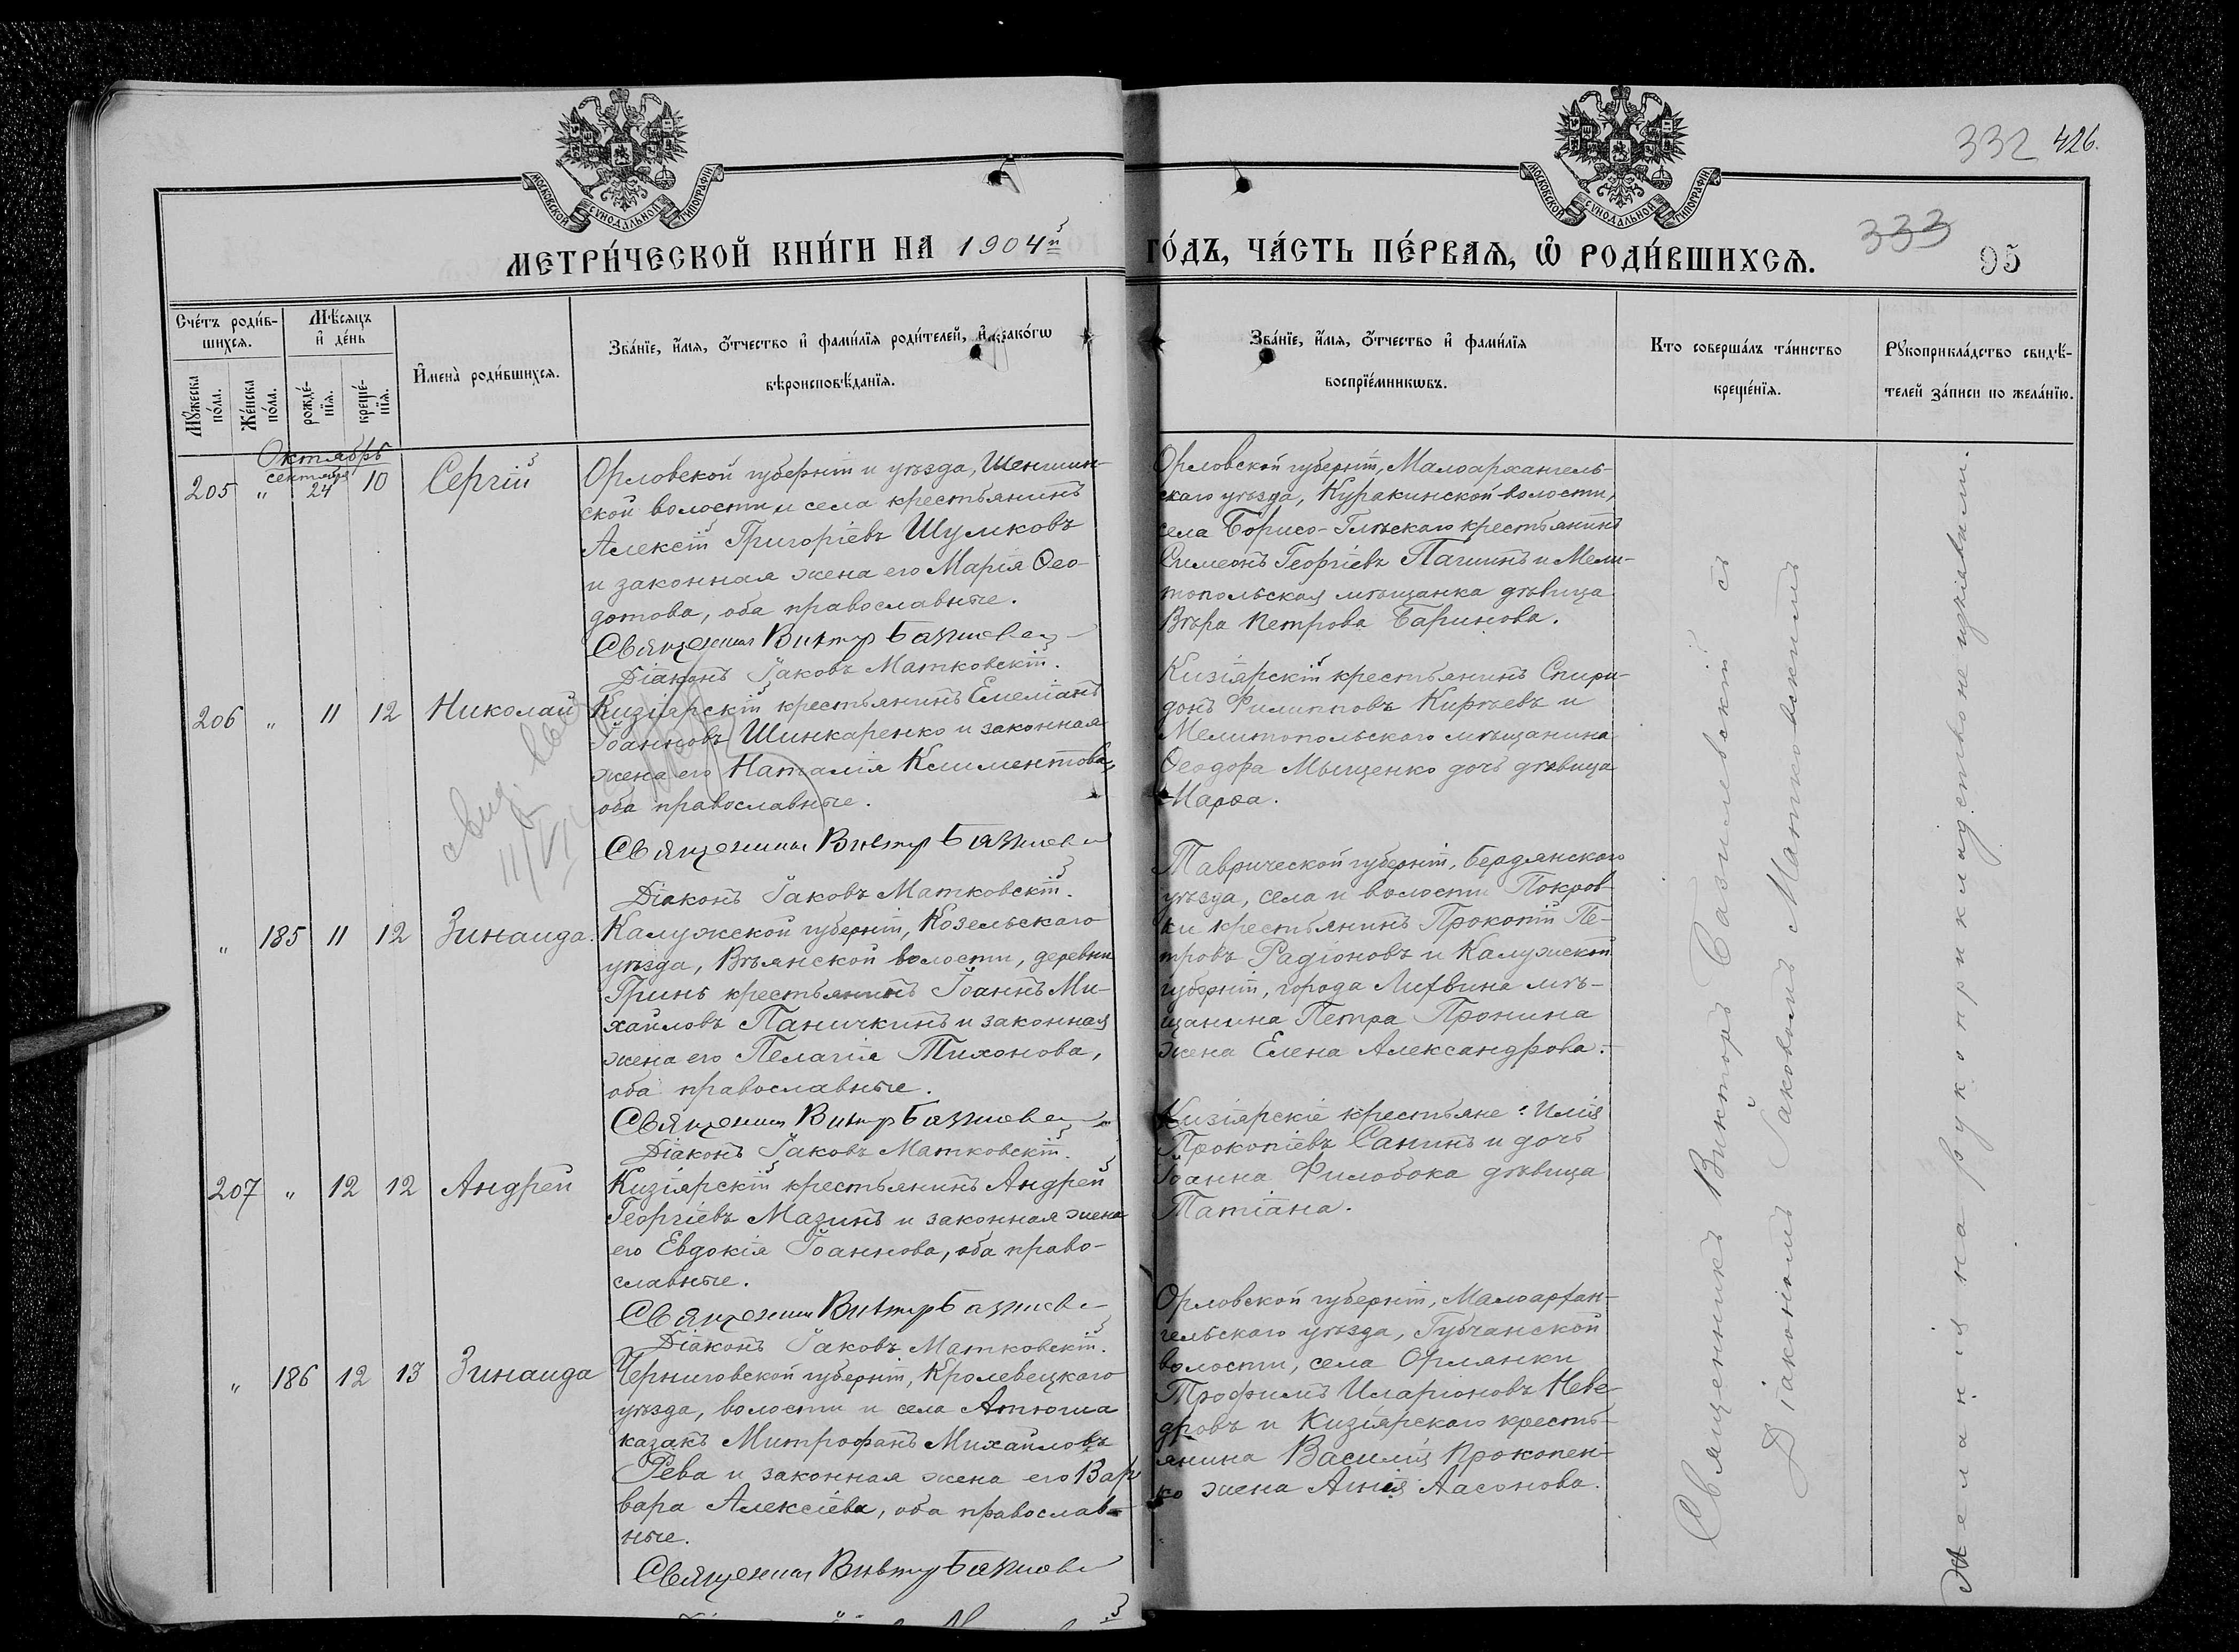 332 426.
МОСКОВСКОЙ СѴНОДАЛЬНОЙ ТИПОГРАФІИ
МОСКОВСКОЙ СѴНОДАЛЬНОЙ ТИПОГРАФІИ
333
95
МЕТРИ́ЧЕСКОЙ КНИ́ГИ НА 1904й ГО́ДЪ, ЧА́СТЬ ПЕ́РВАѦ, Ѡ҆ РОДИ́ВШИХСѦ.
Сче́тъ роди́в-
шихсѧ.
Мѹ́жеска по́ла.
Же́нска по́ла.
Мѣ́сѧцъ
и҆ де́нь
рожде́-
нїѧ.
креще́-
нїѧ.
И҆мена̀ роди́вшихсѧ.
Зва́нїе, и҆́мѧ, ѻ҆́тчество и҆ фами́лїѧ роди́телей, и҆ како́гѡ
вѣроисповѣ́данїѧ.
Зва́нїе, и҆́мѧ, ѻ҆́тчество и҆ фами́лїѧ
воспрїе́мникѡвъ.
Кто соверша́лъ та́инство
креще́нїѧ.
Рѹкоприкла́дство свидѣ́-
телей за́писи по жела́нїю.
Октябрь
сентября
205 " 24 10 Сергій
Орловской губерніи и уѣзда, Шеншин-
ской волости и села крестьянинъ
Алексій Григоріевъ Шумковъ
и законная жена его Марія Ѳео-
дотова, оба православные.
Священник Виктор Базилев
Діаконъ Іаковъ Матковскій.
Орловской губерніи, Малоархангель-
скаго уѣзда, Куракинской волости,
села Борисо-Глѣбскаго крестьянинъ
Симеонъ Георгіевъ Пашинъ и Мели-
топольская мѣщанка дѣвица
Вѣра Петрова Баринова.
206 " 11 12 Николай
Кизіярскій крестьянинъ Емеліанъ
Іоанновъ Шинкаренко и законная
жена его Наталія Климентова,
оба православные.
Священник Виктор Базилев
Діаконъ Іаковъ Матковскій.
Кизіярскій крестьянинъ Спири-
донъ Филипповъ Киргѣевъ и
Мелитопольскаго мѣщанина
Ѳеодора Мыщенко дочь дѣвица
Марѳа.
11/VI
" 185 11 12 Зинаида.
Калужской губерніи, Козельскаго
уѣзда, Вѣлянской волости, деревни
Гринь крестьянинъ Іоаннъ Ми-
хаиловъ Паничкинъ и законная
жена его Пелагія Тихонова,
оба православные.
Священник Виктор Базилев
Діаконъ Іаковъ Матковскій.
Таврической губерніи, Бердянскаго
уѣзда, села и волости Покров-
ки крестьянинъ Прокопій Пе-
тровъ Радіоновъ и Калужской
губерніи, города Лихвина мѣ-
щанина Петра Пронина
жена Елена Александрова.
207 " 12 12 Андрей
Кизіярскій крестьянинъ Андрей
Георгіевъ Мазинъ и законная жена
его Евдокія Іоаннова, оба право-
славные.
Священник Виктор Базилев
Діаконъ Іаковъ Матковскій.
Кизіярскіе крестьяне: Илія
Прокопіевъ Санинъ и дочь
Іоанна Филобока дѣвица
Татіана.
" 186 12 13 Зинаида
Черниговской губерніи, Кролевецкаго
уѣзда, волости и села Атюша
казакъ Митрофанъ Михаиловъ
Рева и законная жена его Вар
вара Алексіева, оба православ-
ные.
Священник Виктор Базилев
Орловской губерніи, Малоархан-
гельскаго уѣзда, Губчанской
волости, села Орлянки
Трофимъ Иларіоновъ Неве-
дровъ и Кизіярскаго кресть-
янина Василія Прокопен-
ко жена Анна Аасонова.
Священникъ Викторъ Базилевскій съ
Діакономъ Іаковомъ Матковскимъ
Желанія на рукоприкладство не изъявили.